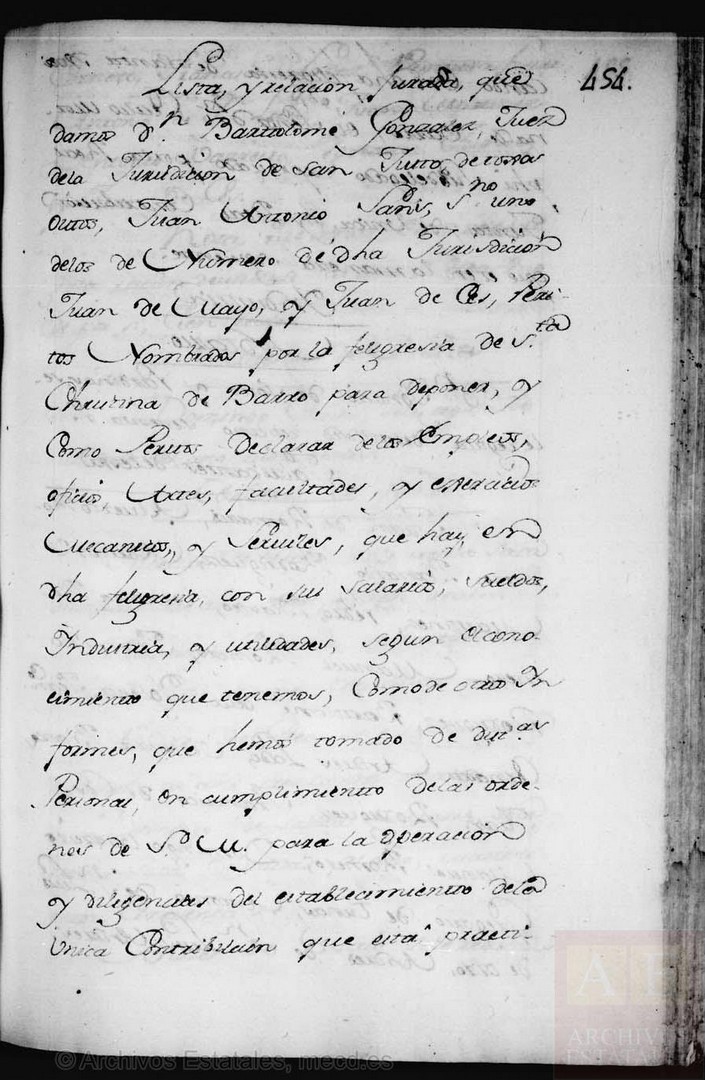 454.
Lista, y relacion Jurada, que
damos Dn. Bartolomé Gonzalez, Juez
dela Jurisdicion de San Justo de toxos
outos, Juan Antonio Paris, sno uno
delos de Numero de dha Jurisdicion
Juan de Mayo, y Juan de Ces, Peri-
tos Nombrados por la feligresia de Sta
Christina de Barro para deponer, y
Como Peritos Declarar delos Empleos,
oficios Artes, facultades, y exercicios
Mecanicos, y Serviles, que hay en
dha feligresia, con sus salarios, sueldos,
Industria, y utilidades, segun el cono-
cimiento que tenemos, Como de otros In
formes, que hemos tomado de dutas
Personas, en cumplimiento delas orde-
nes de S. M. para la operacion
y diligencias del establecimiento dela
Unica Contribucion que está practi-
© Archivos Estatales, mecd.es
AE
ARCHIVOS
ESTATALES